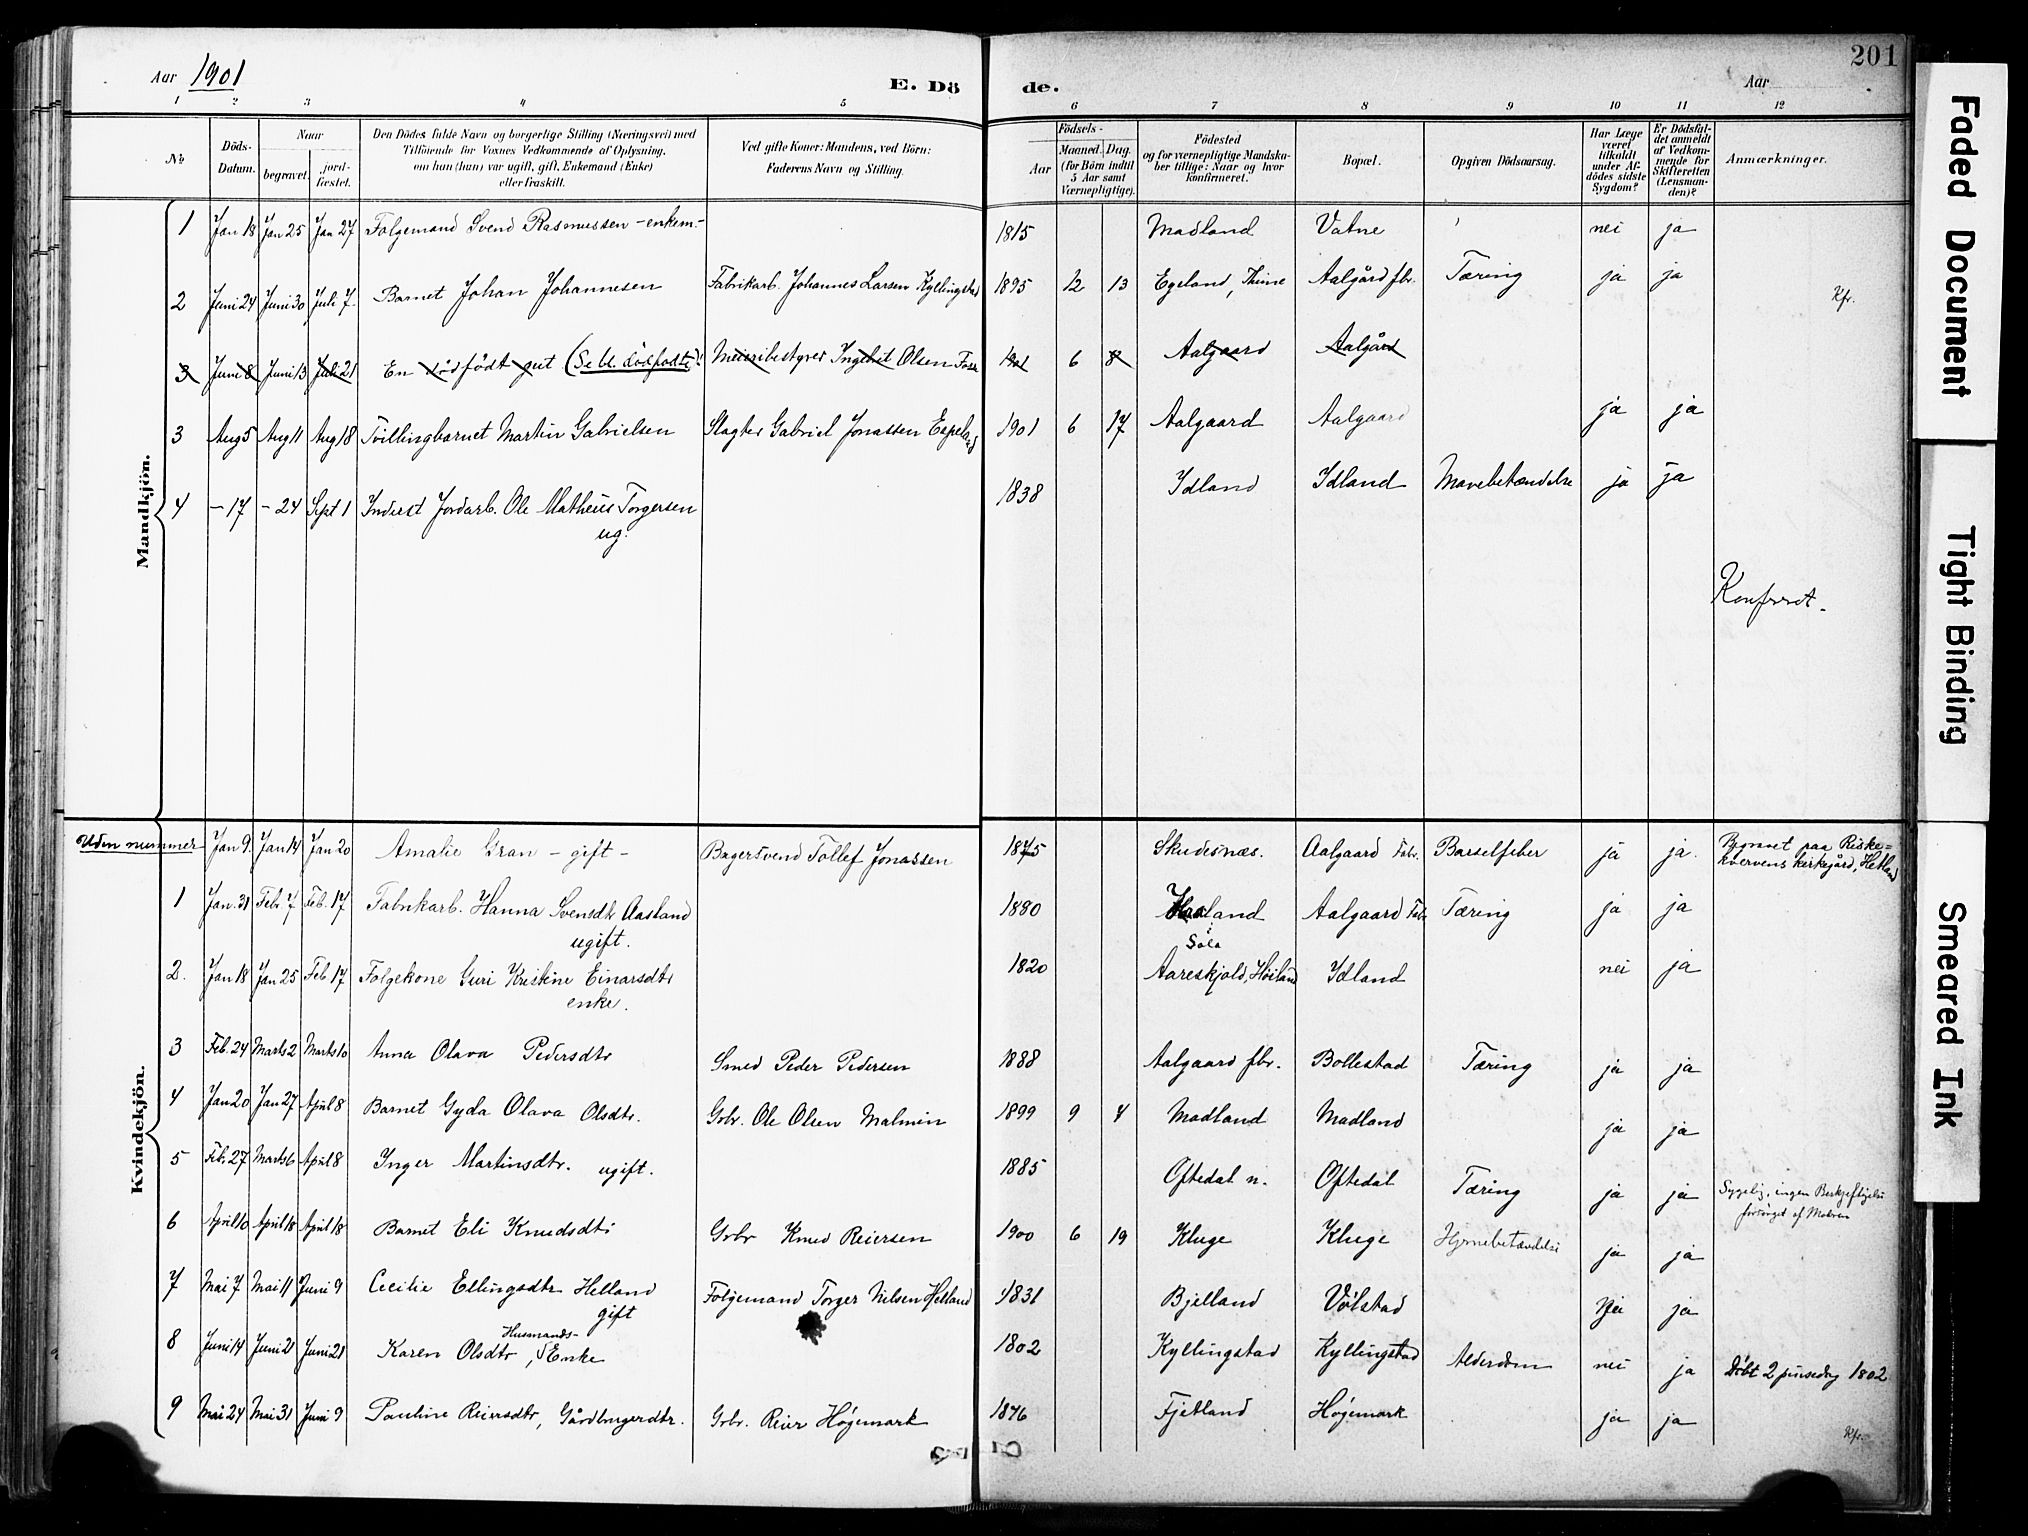 201
Aar 1901
E. Dö
de.
Aar
1 2 3 4 5 6 7 8 9 10 11 12
No
Döds-Datum.
Naar
begravet.
jord-fæstet.
Den Dödes fulde Navn og borgerlige Stilling (Næringsvei) med
Tilföiende for Voxnes Vedkommende af Oplysning,
om han (hun) var ugift, gift, Enkemand (Enke)
eller fraskilt.
Ved gifte Koner: Mandens, ved Börn:
Faderens Navn og Stilling.
Födsels-
Aar
Maaned. Dag.
(for Börn indtil
5 Aar samt
Værnepligtige).
Födested
og for værnepligtige Mandska-
ber tillige: Naar og hvor
konfirmeret.
Bopæl.
Opgiven Dödsaarsag.
Har Læge
været
tilkaldt
under Af-
dödes sidste
Sygdom?
Er Dödsfal-
det anmeldt
af Vedkom-
mende for
Skifteretten
(Lensman-
den)?
Anmærkninger.
Mandkjön.
1 Jan 18 Jan 25 Jan 27 Folgemand Svend Rasmussen - enkem.- 1815 Madland Vatne nei ja
2 Juni 24 Juni 30 Juli 7. Barnet Johan Johannesen Fabrikarb. Johannes Larsen Kyllingstad 1895 12 13 Egeland, Thime Aalgård fbr. Tæring ja ja Kfr.
3 Juni 8 Juni 13 Juli 21 En dödfödt gut (Se bl. dödfödte)! Meieribestyrer Ingebret Olsen 1901 6 8 Aalgaard Aalgård
3 Aug 5 Aug 11 Aug 18 Tvillingbarnet Martin Gabrielsen Slagter Gabriel Jonassen Espeland 1901 6 17 Aalgaard Aalgaard ja ja
4 - 17 - 24 Sept 1 Inderst Jordarb. Ole Matheus Torgersen 1838 Idland Idland Mavebetændelse ja ja
ug.
Konferert.
Kvindekjön.
Uden nummer Jan 9. Jan 14 Jan 20 Amalie Gran - gift - Bagersvend Tollef Jonassen 1875 Skudesnæs. Aalgaard Fabr. Barselfeber ja ja. Begravet paa Riske-
kvervens kirkegård, Hetland
1 Jan. 31 Febr. 7 Feb. 17 Fabrikarb. Hanna Svensdtr Aasland 1880 Haaland Aalgaard Fab. Tæring ja ja
ugift.
i Sole
2. Jan 18 Jan 25 Feb 17 Folgekone Guri Kristine Einarsdtr 1820 Aareskjold, Høiland Idland nei ja
enke.
3 Feb. 24 Marts 2 Marts 10 Anna Olava Pedersdtr Smed Peder Pedersen 1888 Aalgaard fbr. Bollestad Tæring ja ja
4 Jan 20 Jan 27 April 8 Barnet Gyda Olava Olsdtr. Grbr. Ole Olsen Malmin 1899 9 4 Madland Madland ja ja
5 Feb. 27 Marts 6 April 8 Inger Martinsdtr. ugift. 1885 Oftedal n. Oftedal Tæring ja ja Sygelig, ingen Beskjeftigelse
forsörget af Moderen
6 April 10 April 18 April 18 Barnet Eli Knudsdtr Grbr Knud Reiersen 1900 6 19 Kluge Kluge Hjernebetændelse ja ja
7 Mai 7 Mai 11 Juni 9 Cecilie Ellingsdtr Helland Folgemand Torger Nilsen Helland 1831 Bjelland Vølstad Nei ja
gift
Husmands-
8 Juni 14 Juni 21 Juni 21 Karen Olsdtr, Enke 1802 Kyllingstad Kyllingstad Alderdom nei ja Døbt 2 pinsedag 1802
9 Mai 24 Mai 31 Juni 9 Pauline Reiersdtr, Gårdbrugerdtr. Grbr. Reier Høgemark 1876 Fjetland Høgemark ja ja Kfr.
Faded Document
Tight Binding
Smeared Ink